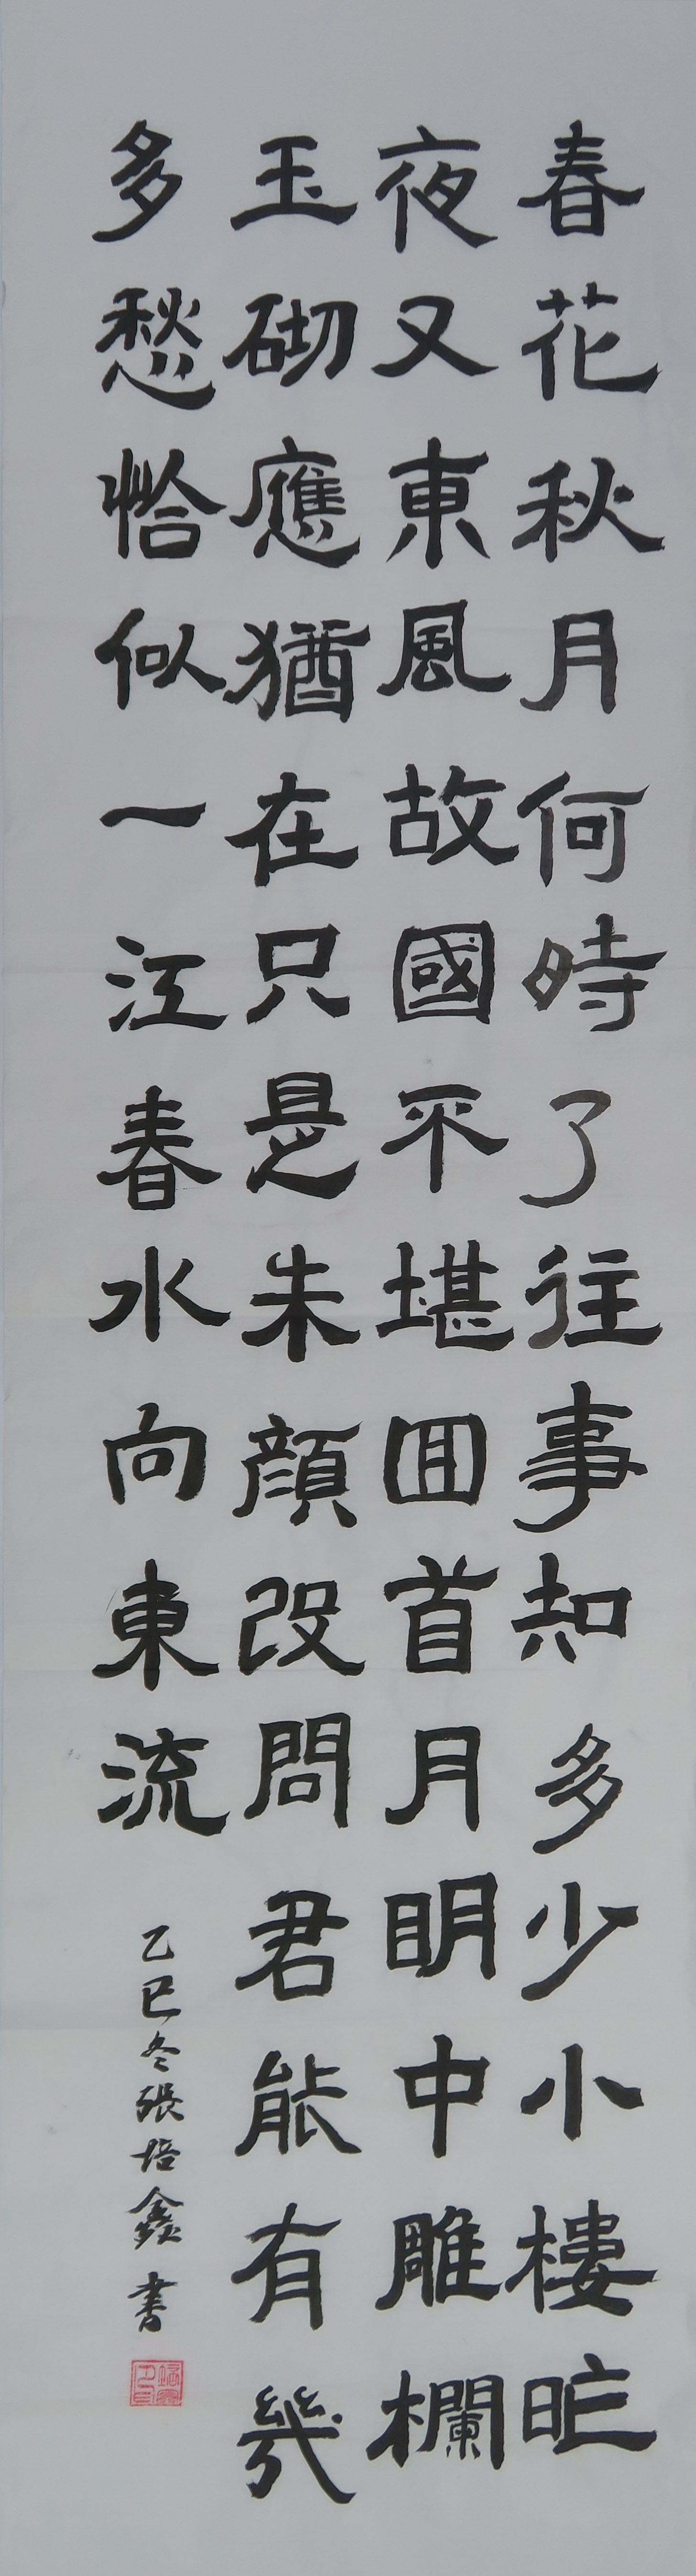 春花秋月何時了往事知多少小樓昨
夜又東風故國不堪回首月明中雕欄
玉砌應猶在只是朱顔改問君能有幾
多愁恰似一江春水向東流
乙巳冬張培鑫書